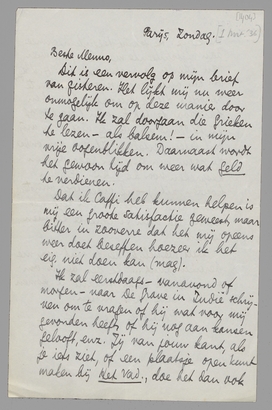 Parijs, Zondag.
Beste Menno,
Dit is een vervolg op mijn brief
van gisteren. Het lijkt mij nu weer
onmogelijk om op deze manier door
te gaan. Ik zal doorgaan die Grieken
te lezen - als balsem! - in mijn
vrije oogenblikken. Daarnaast wordt
het gewoon tijd om weer wat geld
te verdienen.
Dat ik Caffi heb kunnen helpen is
mij een groote satisfactie geweest, maar
bitter in zooverre dat het mij opeens
weer doet beseffen hoezeer ik het
eig. niet doen kan (mag).
Ik zal eerstdaags - vanavond of
morgen - naar De Grave in Indië schrij-
ven om te vragen of hij wat voor mij
gevonden heeft, of hij nog aan kansen
gelooft, enz. Zij van jouw kant, als
je iets ziet, of een plaatsje open kunt
maken bij Het Vad., doe het dan ook